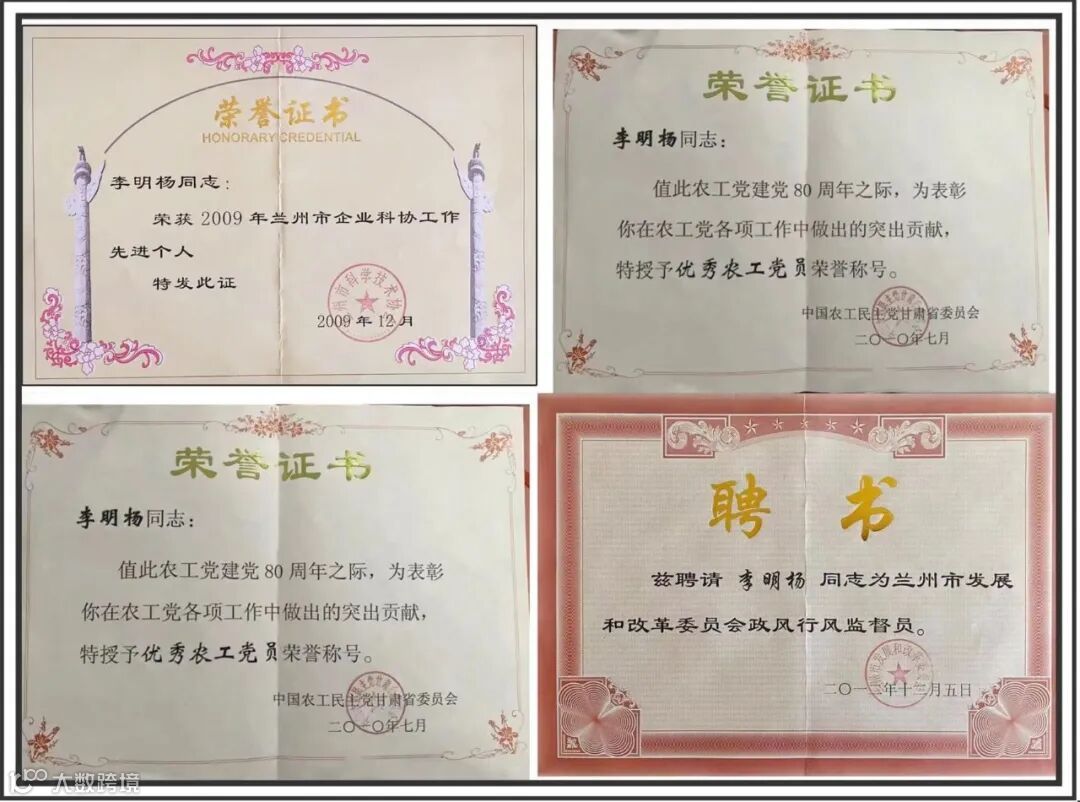 荣誉证书
HONORARY CREDENTIAL
李明杨同志：
荣获 2009 年兰州市企业科协工作
先进个人
特发此证
2009 年 12 月
荣誉证书
李明杨同志：
值此农工党建党 80 周年之际，为表彰
你在农工党各项工作中做出的突出贡献，
特授予优秀农工党员荣誉称号。
中国农工民主党甘肃省委员会
二〇一〇年七月
荣誉证书
李明杨同志：
值此农工党建党 80 周年之际，为表彰
你在农工党各项工作中做出的突出贡献，
特授予优秀农工党员荣誉称号。
中国农工民主党甘肃省委员会
二〇一〇年七月
聘书
兹聘请 李明杨 同志为兰州市发展
和改革委员会政风行风监督员。
月五日
大数跨境